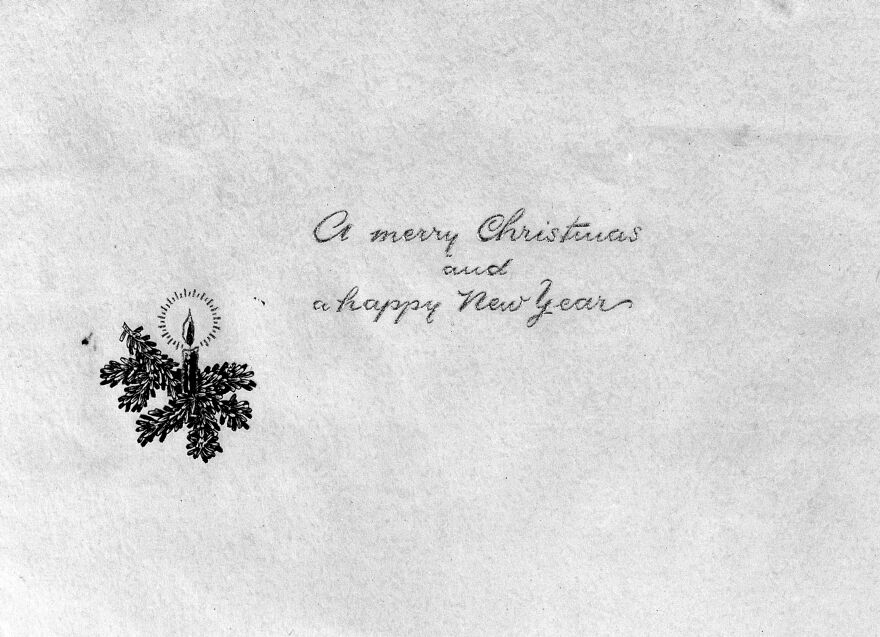 A merry Christmas
and
a happy New Year